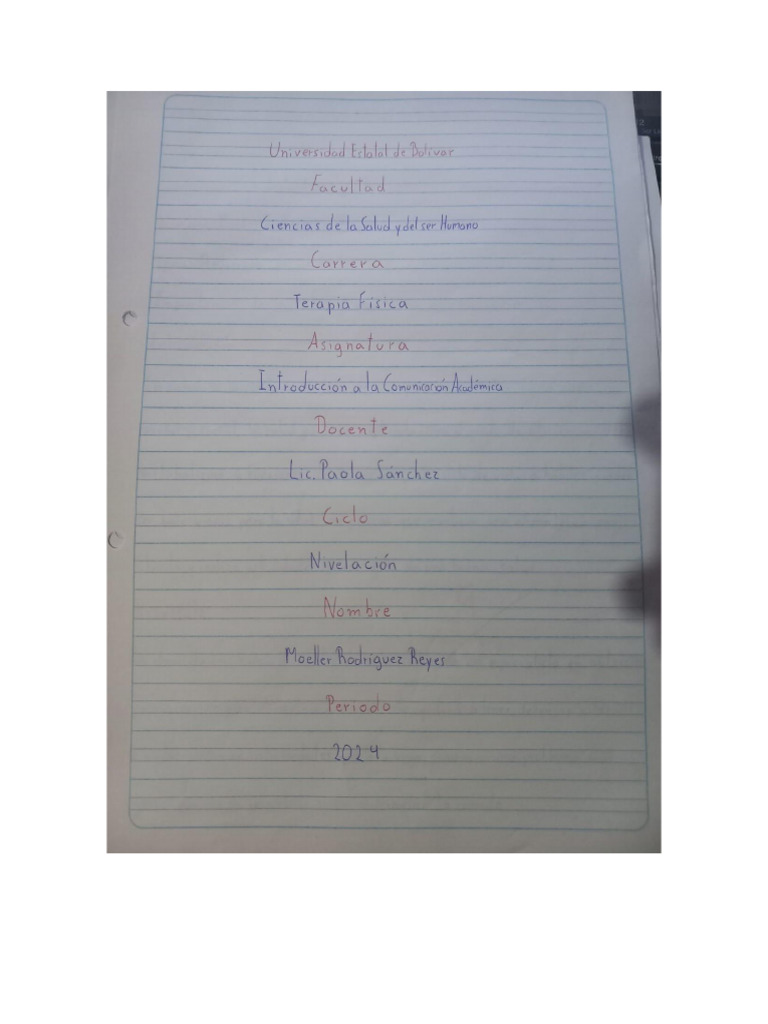 Universidad Estatal de Bolívar
Facultad
Ciencias de la Salud y del ser Humano
Carrera
Terapia Física
Asignatura
Introducción a la Comunicación Académica
Docente
Lic. Paola Sánchez
Ciclo
Nivelación
Nombre
Moeller Rodríguez Reyes
Periodo
2024